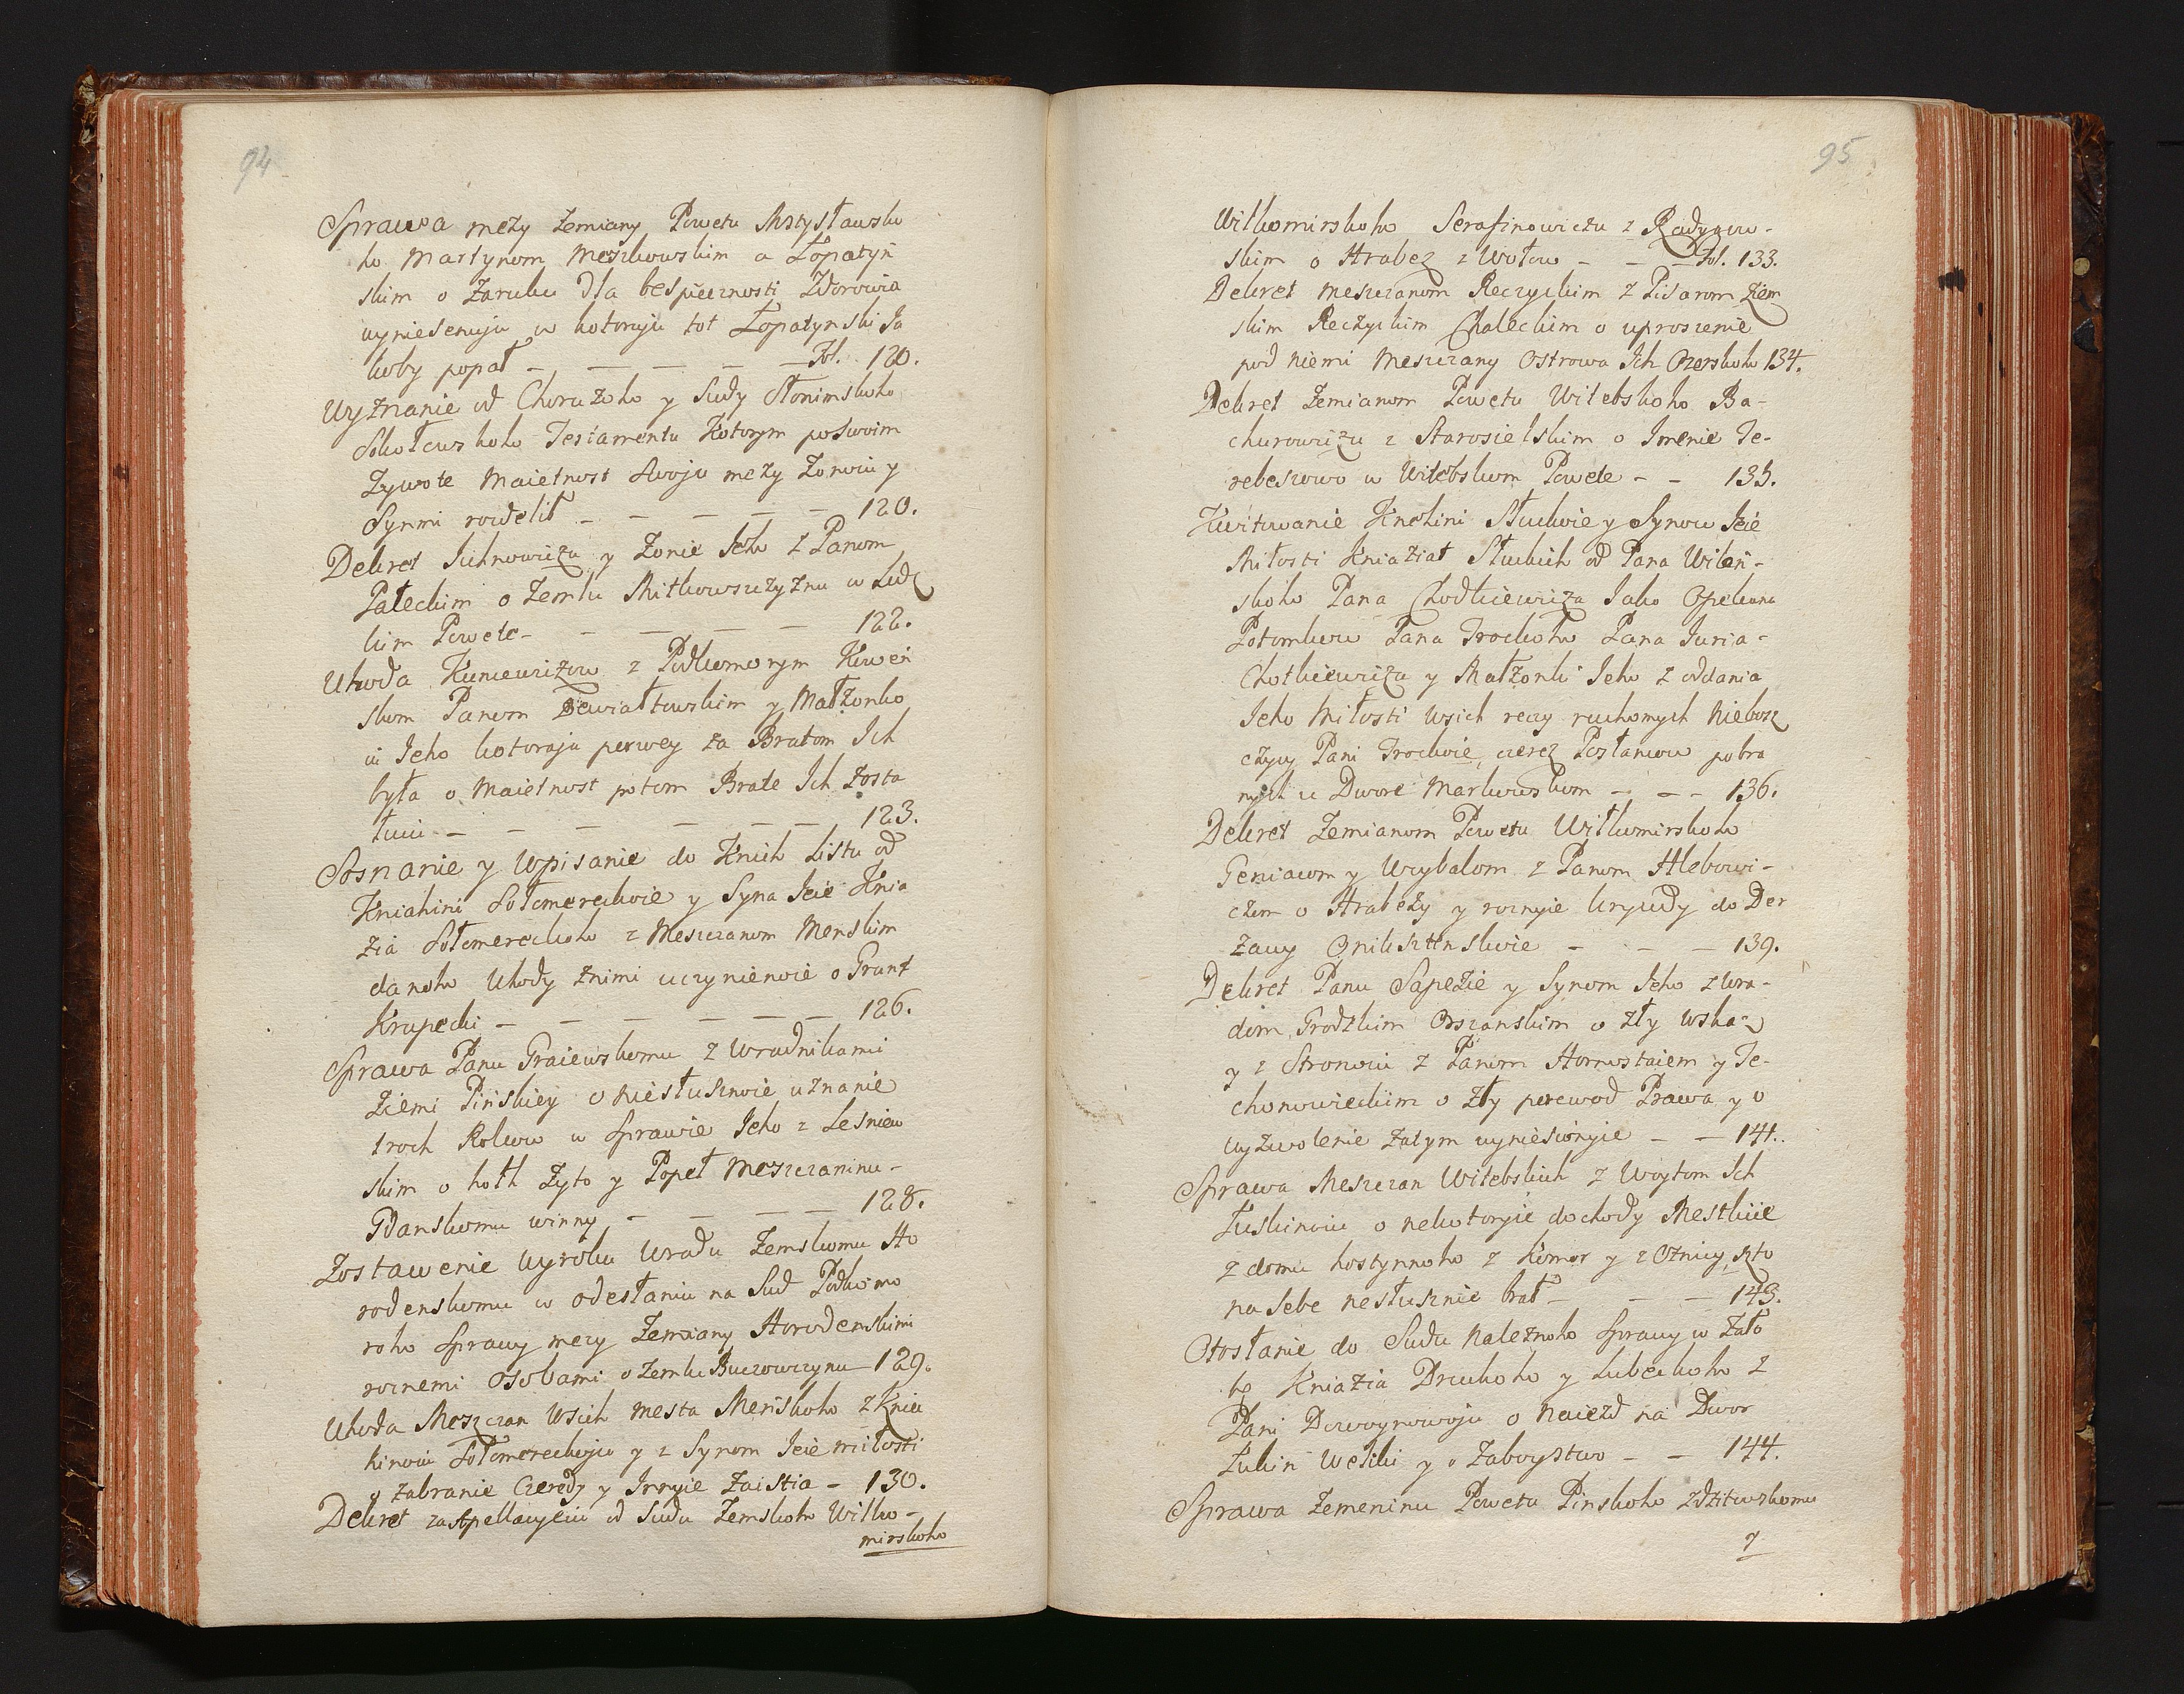 94
Sprawa mezy Zemiany Powetu Mstysławsko
ho Martynom Meszkowskim a Łopatyń
skim o Zaruku Dla bespiecznosti Zdorowia
wyniesenuju w kotoruju tot Łopatynski Ja
koby popał – – – – – Fol. 120.
Wyznanie od Choruzoho y Sudy Słonimskoho
Sokołewskoho Testamentu Kotorym po Swoim
Zywote Maietnost Swoju mezy Zonoiu y
Synmi rozdelił – – – – – 120.
Dekret Juchnowiczu y Zonie Jeho z Panom
Pałeckim o Zemlu Mitkowszczyznu w Lidz
kim Powete – – – – 122.
Uhoda Kuncewiczow z Podkomorym Kowen
skom Panom Dewiałtowskim y Małżonko
iu Jeho kotoraja perwey za Bratom Ich
była o Maietnost potom Brate Ich Zosta
łuiu – – – – – – 123.
Sosnanie y Wpisanie do Knih Listu od
Kniahini Sołomereckoie y Syna Jeie Knia
zia Sołomereckoho z Meszczanom Menskim
danoho Uhody znimi uczynienoie o Grunt
Krupecki – – – – – – 126.
Sprawa Panu Graiewskomu z Wradnikami
Ziemi Pińskiey o niesłusznoie uznanie
troch Rokow w Sprawie Jeho z Lesniew
skim o hoth Zyto y Popeł Meszczaninu –
Gdanskomu winny – – – – 128.
Zostawenie Wyroku Wradu Zemskomu Ho
rodenskomu w odesłaniu na Sud Podkomo
roho Sprawy mezy Zemiany Horodenskimi
roznemi Osobami o Zemlu Buczowczynu 129.
Uhoda Meszczan Wsich Mesta Menskoho z Knia
hinoiu Sołomereckoju y z Synom Jeie miłosti
o zabranie Czeredy y Innyie Zaistia – 130.
Dekret za Apellacyeiu od Sudu Zemskoho Wilko –
mirskoho
95
Wilkomirskoho Serafinowiczu z Radygow –
skim o Hrabez z Wołow – – – Fol. 133.
Dekret Meszczanom Reczyckim z Pisarom Ziem
skim Reczyckim Chaleckim o uproszenie
pod niemi Meszczany Ostrowa Ich Ozerskoho 134.
Dekret Zemianom Powetu Witebskoho Ba –
churowiczu z Starosielskim o Imenie Te –
rebeszowo w Witebskom Powete – – 135.
Kwitowanie Knehini Słuckoie y Synow Jeie
Miłosti Kniaziat Słuckich od Pana Wilen –
skoho Pana Chodkiewicza Jako Opekuna
Potomkow Pana Trockoho Pana Juria –
Chotkiewicza y Małżonki Jeho z oddania
Jeho Miłosti Wsich reczy ruchomych Niebosz
czycy Pani Trockoie, czerez Posłancow pobra
nych u Dwore Markowskom – – – 136.
Dekret Zemianom Powetu Wilkomirskoho
Geniacom y Wrybalom z Panom Hlebowi –
czom o Hrabezy y roznyie krywdy do Der
zawy Oniksztenskoie – – – 139.
Dekret Panu Sapezie y Synom Jeho z Wra –
dom Grodzkim Orszanskim o zły Wskaz
y z Stronoiu z Panom Hornostaiem y Te –
chonowieckim o zły perewod Prawa y o
wyzwolenie zatym wyniesionyie – – 141.
Sprawa Meszczan Witebskich z Woytom Ich
Łuskinoiu o nekotoryie dochody Mestkiie
z domu hostynnoho z Komor y z Oznicy, szto
na Sebe nesłusznie brał – – – 143.
Otosłanie do Sudu Naleznoho Sprawy w Zało
be Kniazia Druckoho y Lubeckoho z
Pani Dowoynowoju o Naiezd na Dwor
Łukin Weliki y o Zaboystwo – – 144.
Sprawa Zemeninu Powetu Pinskoho Zdzitowskomu
y